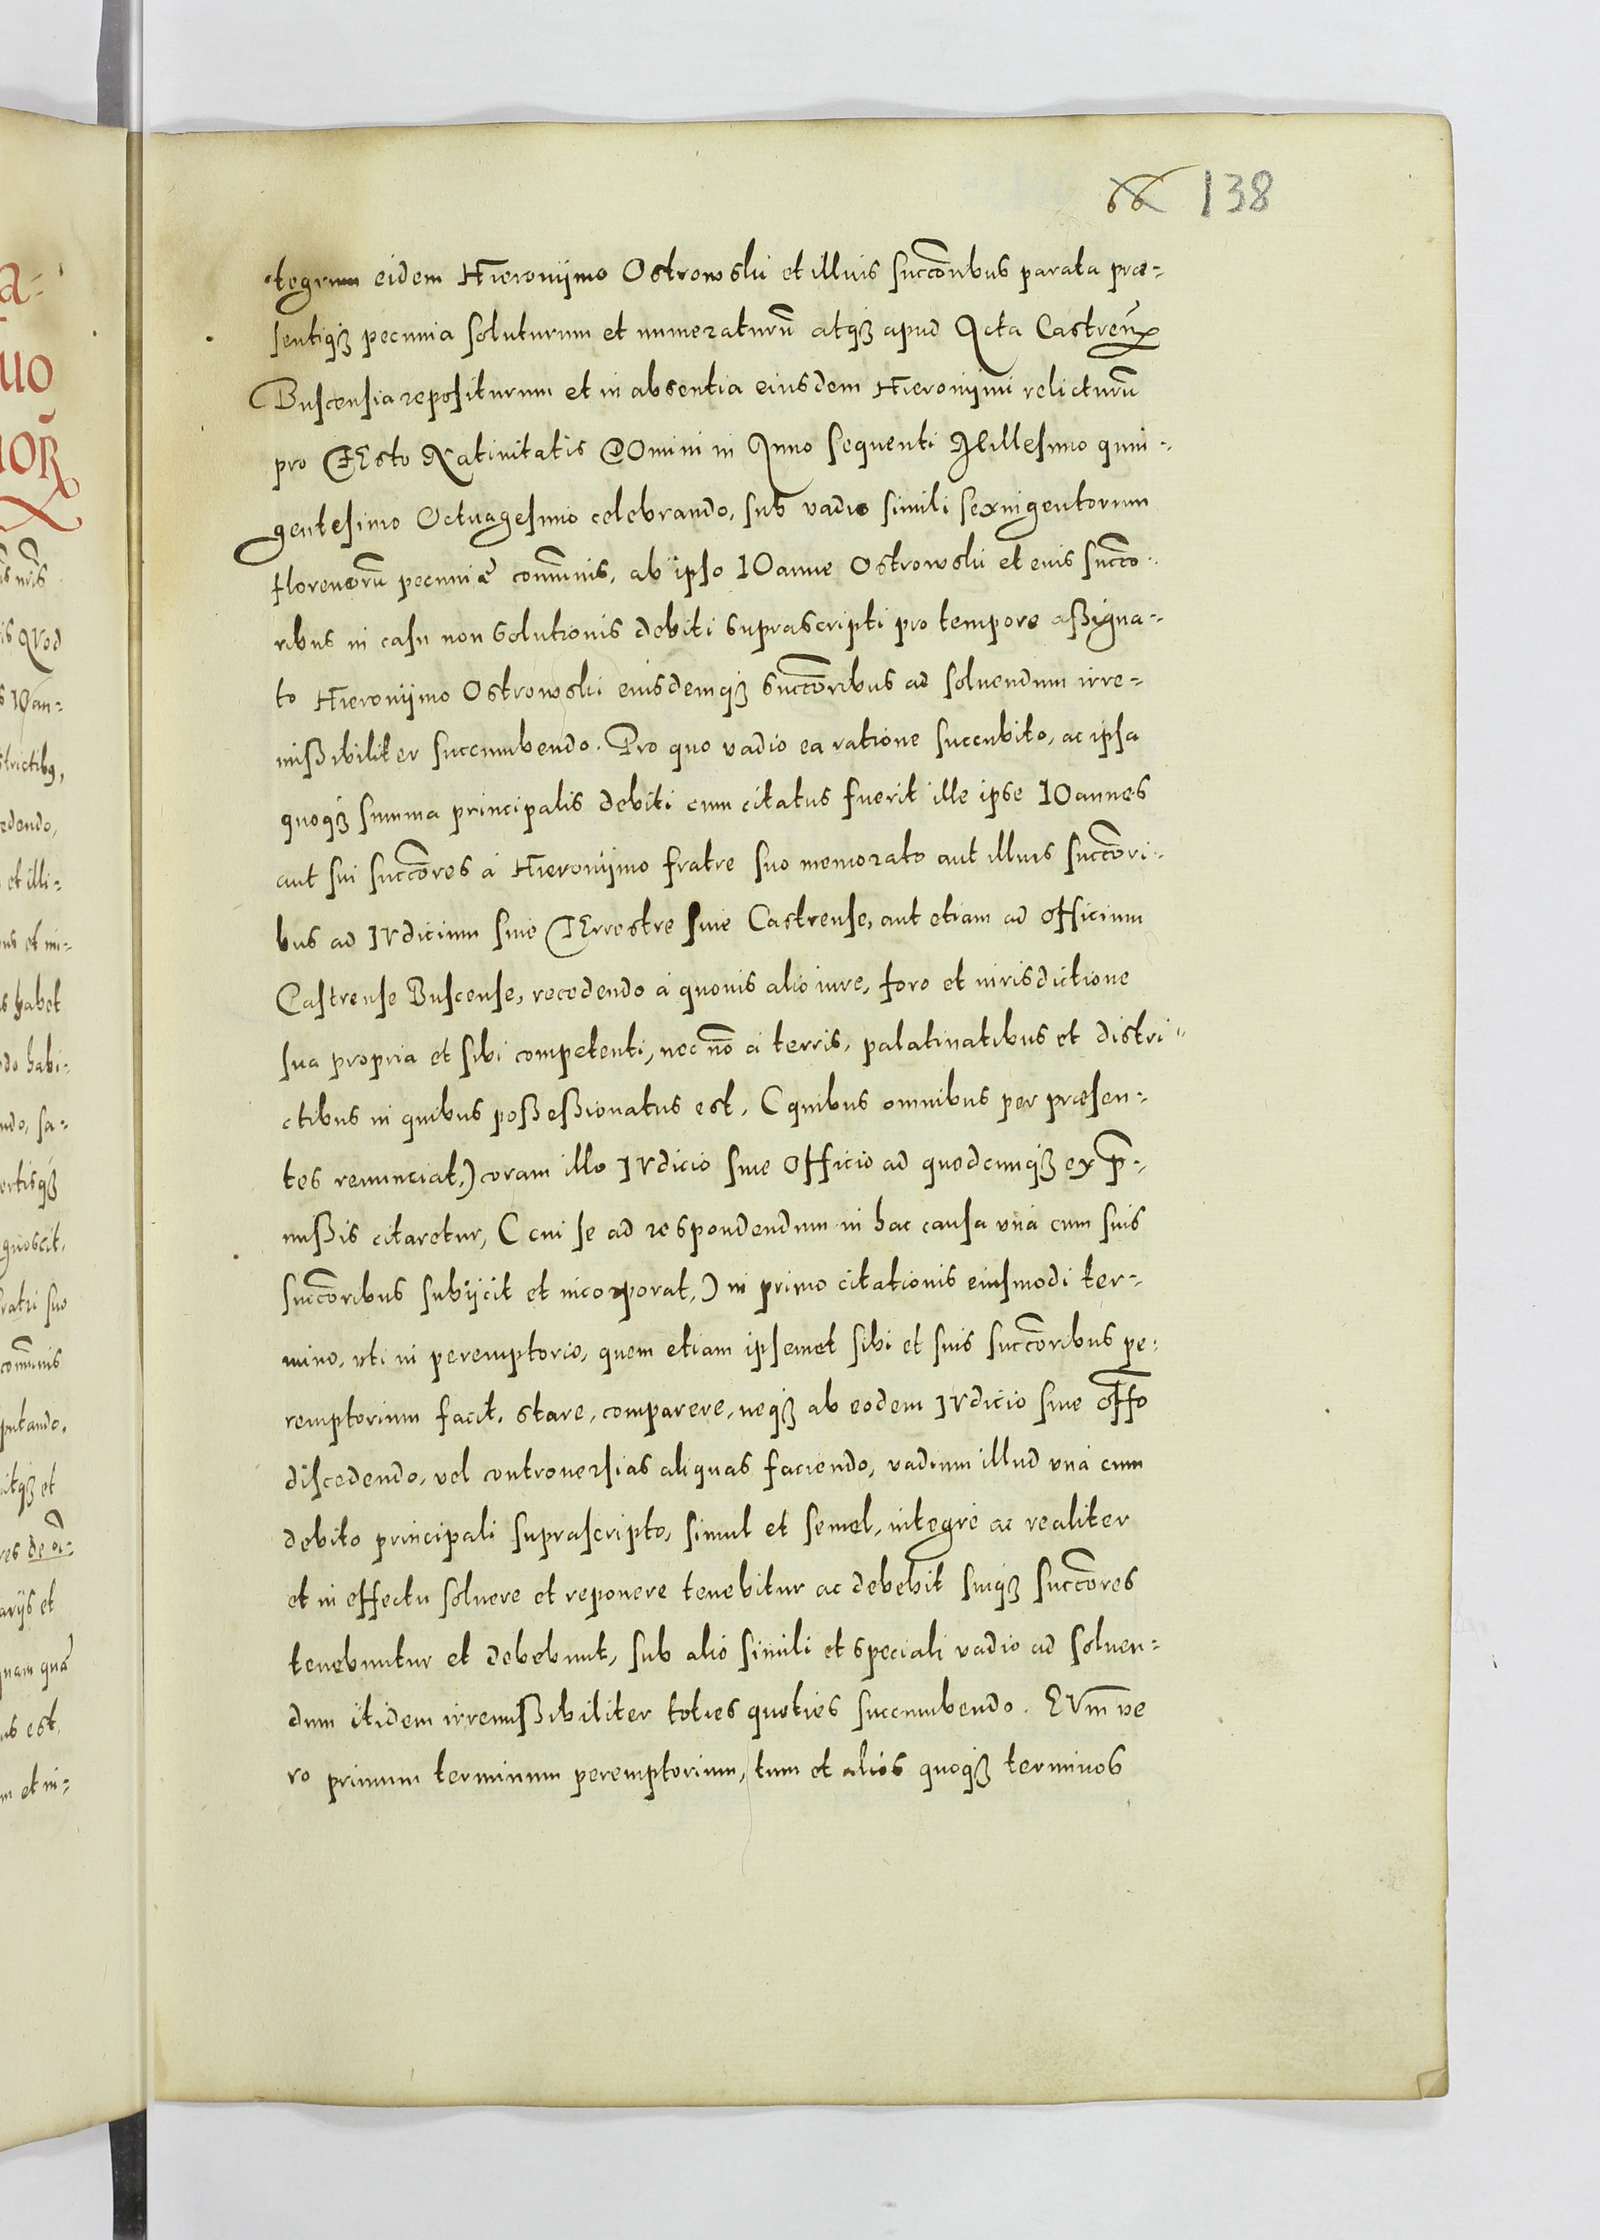 66 138
tegrum eidem Hieronijmo Ostrowski et illius succōribus parata præ-
sentiqꝫ pecunia soluturum et numeraturū atqꝫ apud Acta Castreñ
Buscensia repositurum et in absentia eiusdem Hieronijmi relicturū
pro FEsto Natiuitatis DOmini in Anno sequenti Millesimo quin-
gentesimo Octuagesimo celebrando, sub vadio simili sexingentorum
florenorū pecuniæ com̄unis, ab ipso IOanne Ostrowski et eius succō-
ribus in casu non solutionis debiti suprascripti pro tempore aßigna-
to Hieronijmo Ostrowski eiusdemqꝫ succōribus ad soluendum irre-
mißibiliter succumbendo. Pro quo vadio ea ratione succubito, ac ipsa
quoqꝫ summa principalis debiti cum citatus fuerit ille ipse IOannes
aut sui succōres à Hieronijmo fratre suo memorato aut illius succōri-
bus ad IVdicium siue TErrestre siue Castrense, aut etiam ad officium
Castrense Buscense, recedendo à quouis alio iure, foro et iurisdictione
sua propria et sibi competenti, nec nō à terris, palatinatibus et distri-
ctibus in quibus poßeßionatus est, (quibus omnibus per præsen-
tes renunciat,) coram illo IVdicio siue Officio ad quodcunqꝫ ex p̄-
mißis citaretur, (cui se ad respondendum in hac causa vnà cum suis
succōribus subijcit et incorporat,) in primo citationis eiusmodi ter-
mino, vti in peremptorio, quem etiam ipsemet sibi et suis succōribus pe-
remptorium facit, stare, comparere, neqꝫ ab eodem IVdicio siue Offō
discedendo, vel controuersias aliquas faciendo, vadium illud vnà cum
debito principali suprascripto, simul et semel, integrè ac realiter
et in effectu soluere et reponere tenebitur ac debebit suiqꝫ succōres
tenebuntur et debebunt, sub alio simili et speciali vadio ad soluen-
dum itidem irremißibiliter toties quoties succumbendo. EVm̄ ve
ro primum terminum peremptorium, tum et alios quoqꝫ terminos